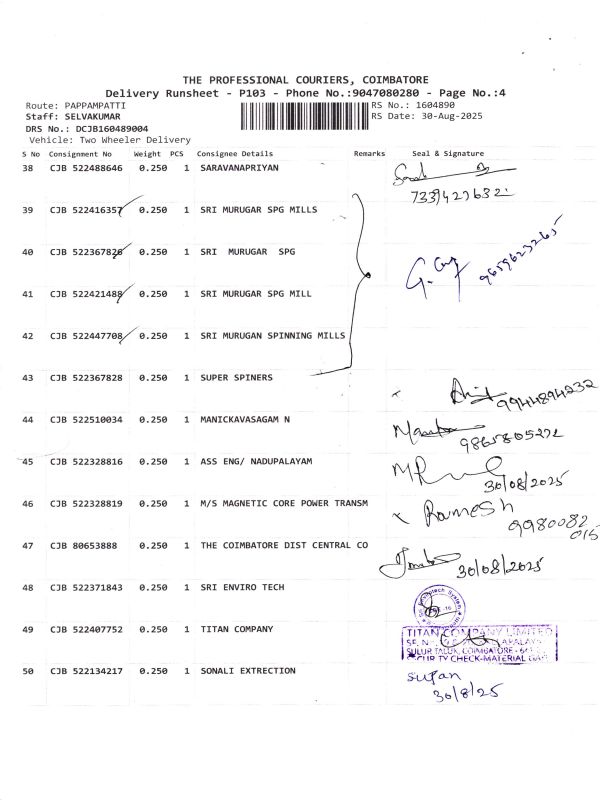 THE PROFESSIONAL COURIERS, COIMBATORE
Delivery Runsheet - P103 - Phone No.:9047080280 - Page No.:4
Route: PAPPAMPATTI RS No.: 1604890
Staff: SELVAKUMAR RS Date: 30-Aug-2025
DRS No.: DCJB160489004
Vehicle: Two Wheeler Delivery
S No Consignment No Weight PCS Consignee Details Remarks Seal & Signature
38 CJB 522488646 0.250 1 SARAVANAPRIYAN
39 CJB 522416357 0.250 1 SRI MURUGAR SPG MILLS
40 CJB 522367826 0.250 1 SRI MURUGAR SPG
9659623265
41 CJB 522421488 0.250 1 SRI MURUGAR SPG MILL
42 CJB 522447708 0.250 1 SRI MURUGAN SPINNING MILLS
43 CJB 522367828 0.250 1 SUPER SPINERS
x 9944894232
44 CJB 522510034 0.250 1 MANICKAVASAGAM N
45 CJB 522328816 0.250 1 ASS ENG/ NADUPALAYAM
30/08/2025
46 CJB 522328819 0.250 1 M/S MAGNETIC CORE POWER TRANSM
x Ramesh
9980082
015
47 CJB 80653888 1 0.250 1 THE COIMBATORE DIST CENTRAL CO
30/08/2025
48 CJB 522371843 0.250 1 SRI ENVIRO TECH
49 CJB 522407752 0.250 1 TITAN COMPANY
TITAN COMPANY LIMITED
SULUR TALUK, COIMBATORE
CHECK-MATERIAL
50 CJB 522134217 0.250 1 SONALI EXTRECTION
30/8/25